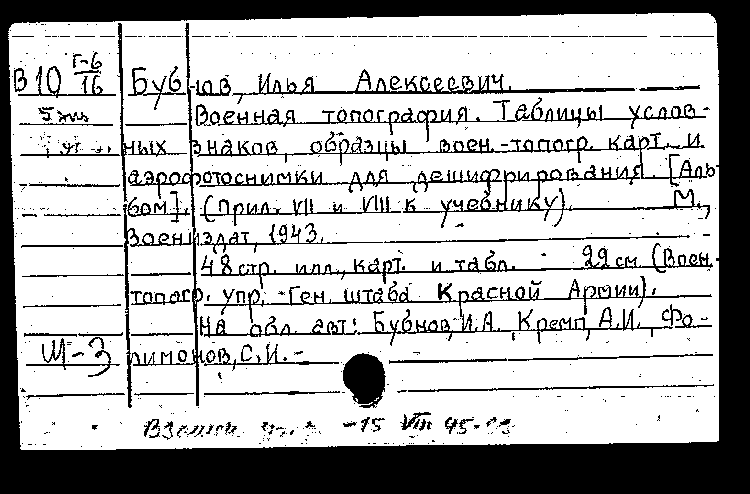 В 10 Г-6/16 Бубнов, Илья Алексеевич.
5 экз Военная топография. Таблицы услов-
ных знаков, образцы воен.-топогр. карт. и
аэрофотоснимки для дешифрирования. [Аль-
бом]. (Прил. VII и VIII к учебнику). М.,
Воениздат, 1943.
48 стр. илл., карт. и табл. 22 см (Воен.-
топогр. упр. Ген. штаба Красной Армии).
На обл. авт: Бубнов, И.А. Кремп, А.И., Фо-
Ш-3 лимонов, С.И. -
-15 VIII 45-